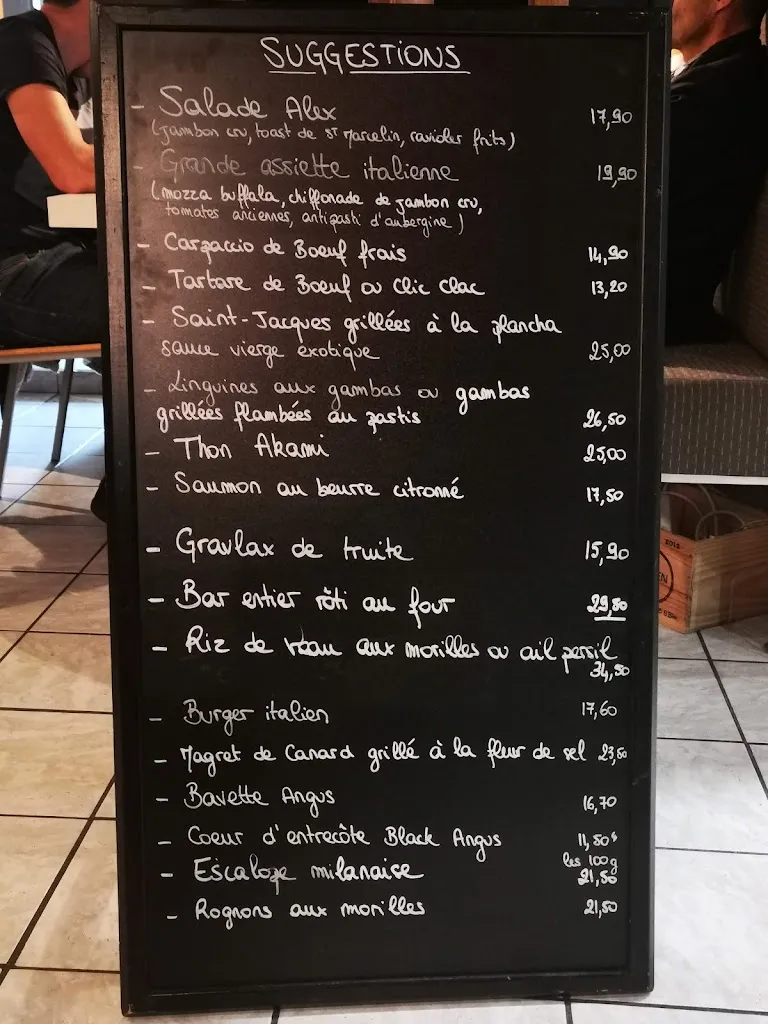 SUGGESTIONS
- Salade Alex 17,90
(jambon cru, toast de ST Marcelin, ravioles frits)
- Grande assiette italienne 19,90
(mozza buffala, chiffonade de jambon cru,
tomates anciennes, antipasti d'aubergine)
- Carpaccio de Boeuf frais 14,90
- Tartare de Boeuf ou Clic Clac 13,20
- Saint-Jacques grillées à la plancha
sauce vierge exotique 25,00
- Linguines aux gambas ou gambas
grillées flambées au pastis 26,50
- Thon Akami 25,00
- Saumon au beurre citronné 17,50
- Gravlax de truite 15,90
- Bar entier rôti au four 29,80
- Riz de veau aux morilles ou ail persil
34,50
- Burger italien 17,60
- Magret de Canard grillé à la fleur de sel 23,80
- Bavette Angus 16,70
- Coeur d'entrecôte Black Angus 11,50
les 100g
- Escalope milanaise 21,50
- Rognons aux morilles 21,50
2012